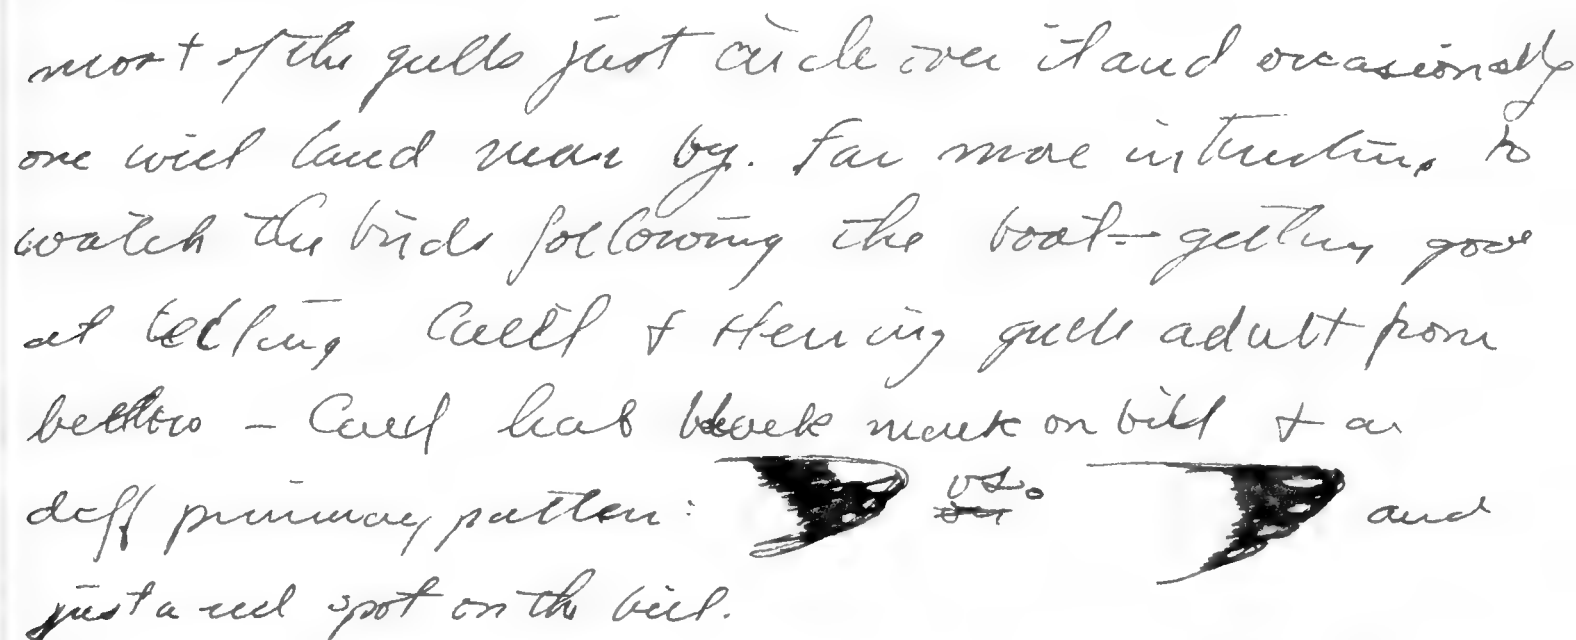 most of the gulls just circle over it and occasionally
one will land near by. Far more interesting to
watch the birds following the boat — getting good
at telling Calif & Herring gulls adult from
below — Calif has black mark on bill & a
diff primary pattern: vs. and
just a red spot on the bill.